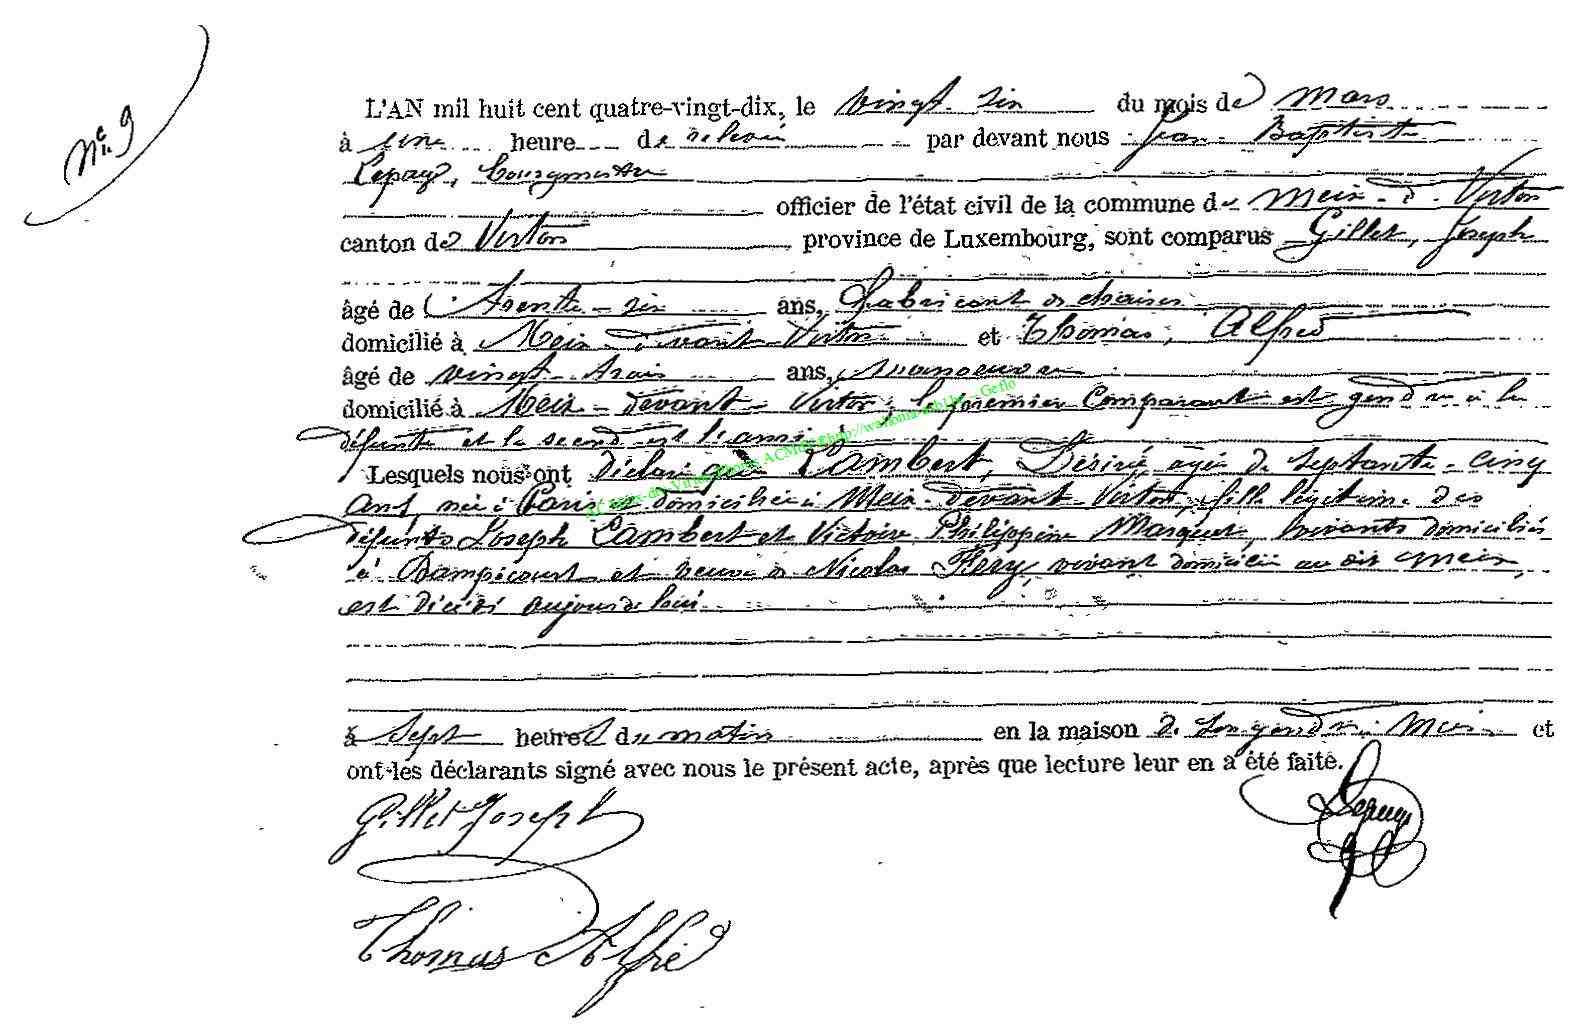 N° 9
L'AN mil huit cent quatre-vingt-dix, le vingt six du mois de Mars
à une heure de relevée par devant nous Jean Baptiste
Lepage, Bourgmestre
officier de l'état civil de la commune de Meix-d-Virton
canton de Virton province de Luxembourg, sont comparus Gillet, Joseph
âgé de trente-six ans, fabricant de chaises
domicilié à Meix-devant-Virton et Thomas, Alfred
âgé de vingt trois ans, manoeuvre
domicilié à Meix-devant-Virton, le premier comparant est gendre à la
défunte et le second est l'ami
Lesquels nous ont déclaré que Lambert, Désiré, agée de septante-cinq
ans, née à Paris domiciliée à Meix-devant-Virton, fille légitime des
défunts Joseph Lambert et Victoire Philippine Marquet, vivants domiciliés
à Dampicourt et veuve de Nicolas Fery, vivant domicilié au dit Meix,
est décédé aujourd'hui
à Sept heures du matin en la maison de son gendre à Meix et
ont les déclarants signé avec nous le présent acte, après que lecture leur en a été faite.
Gillet Joseph
Lepage
Thomas Alfred